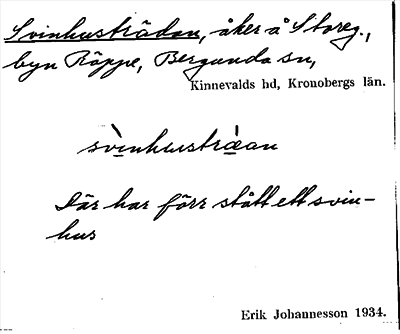 Svinhusträdan, åker å Storeg.,
byn Räppe, Bergunda sn,
Kinnevalds hd, Kronobergs län.
svinhusträan
Där har förr stått ett svin-
hus
Erik Johannesson 1934.